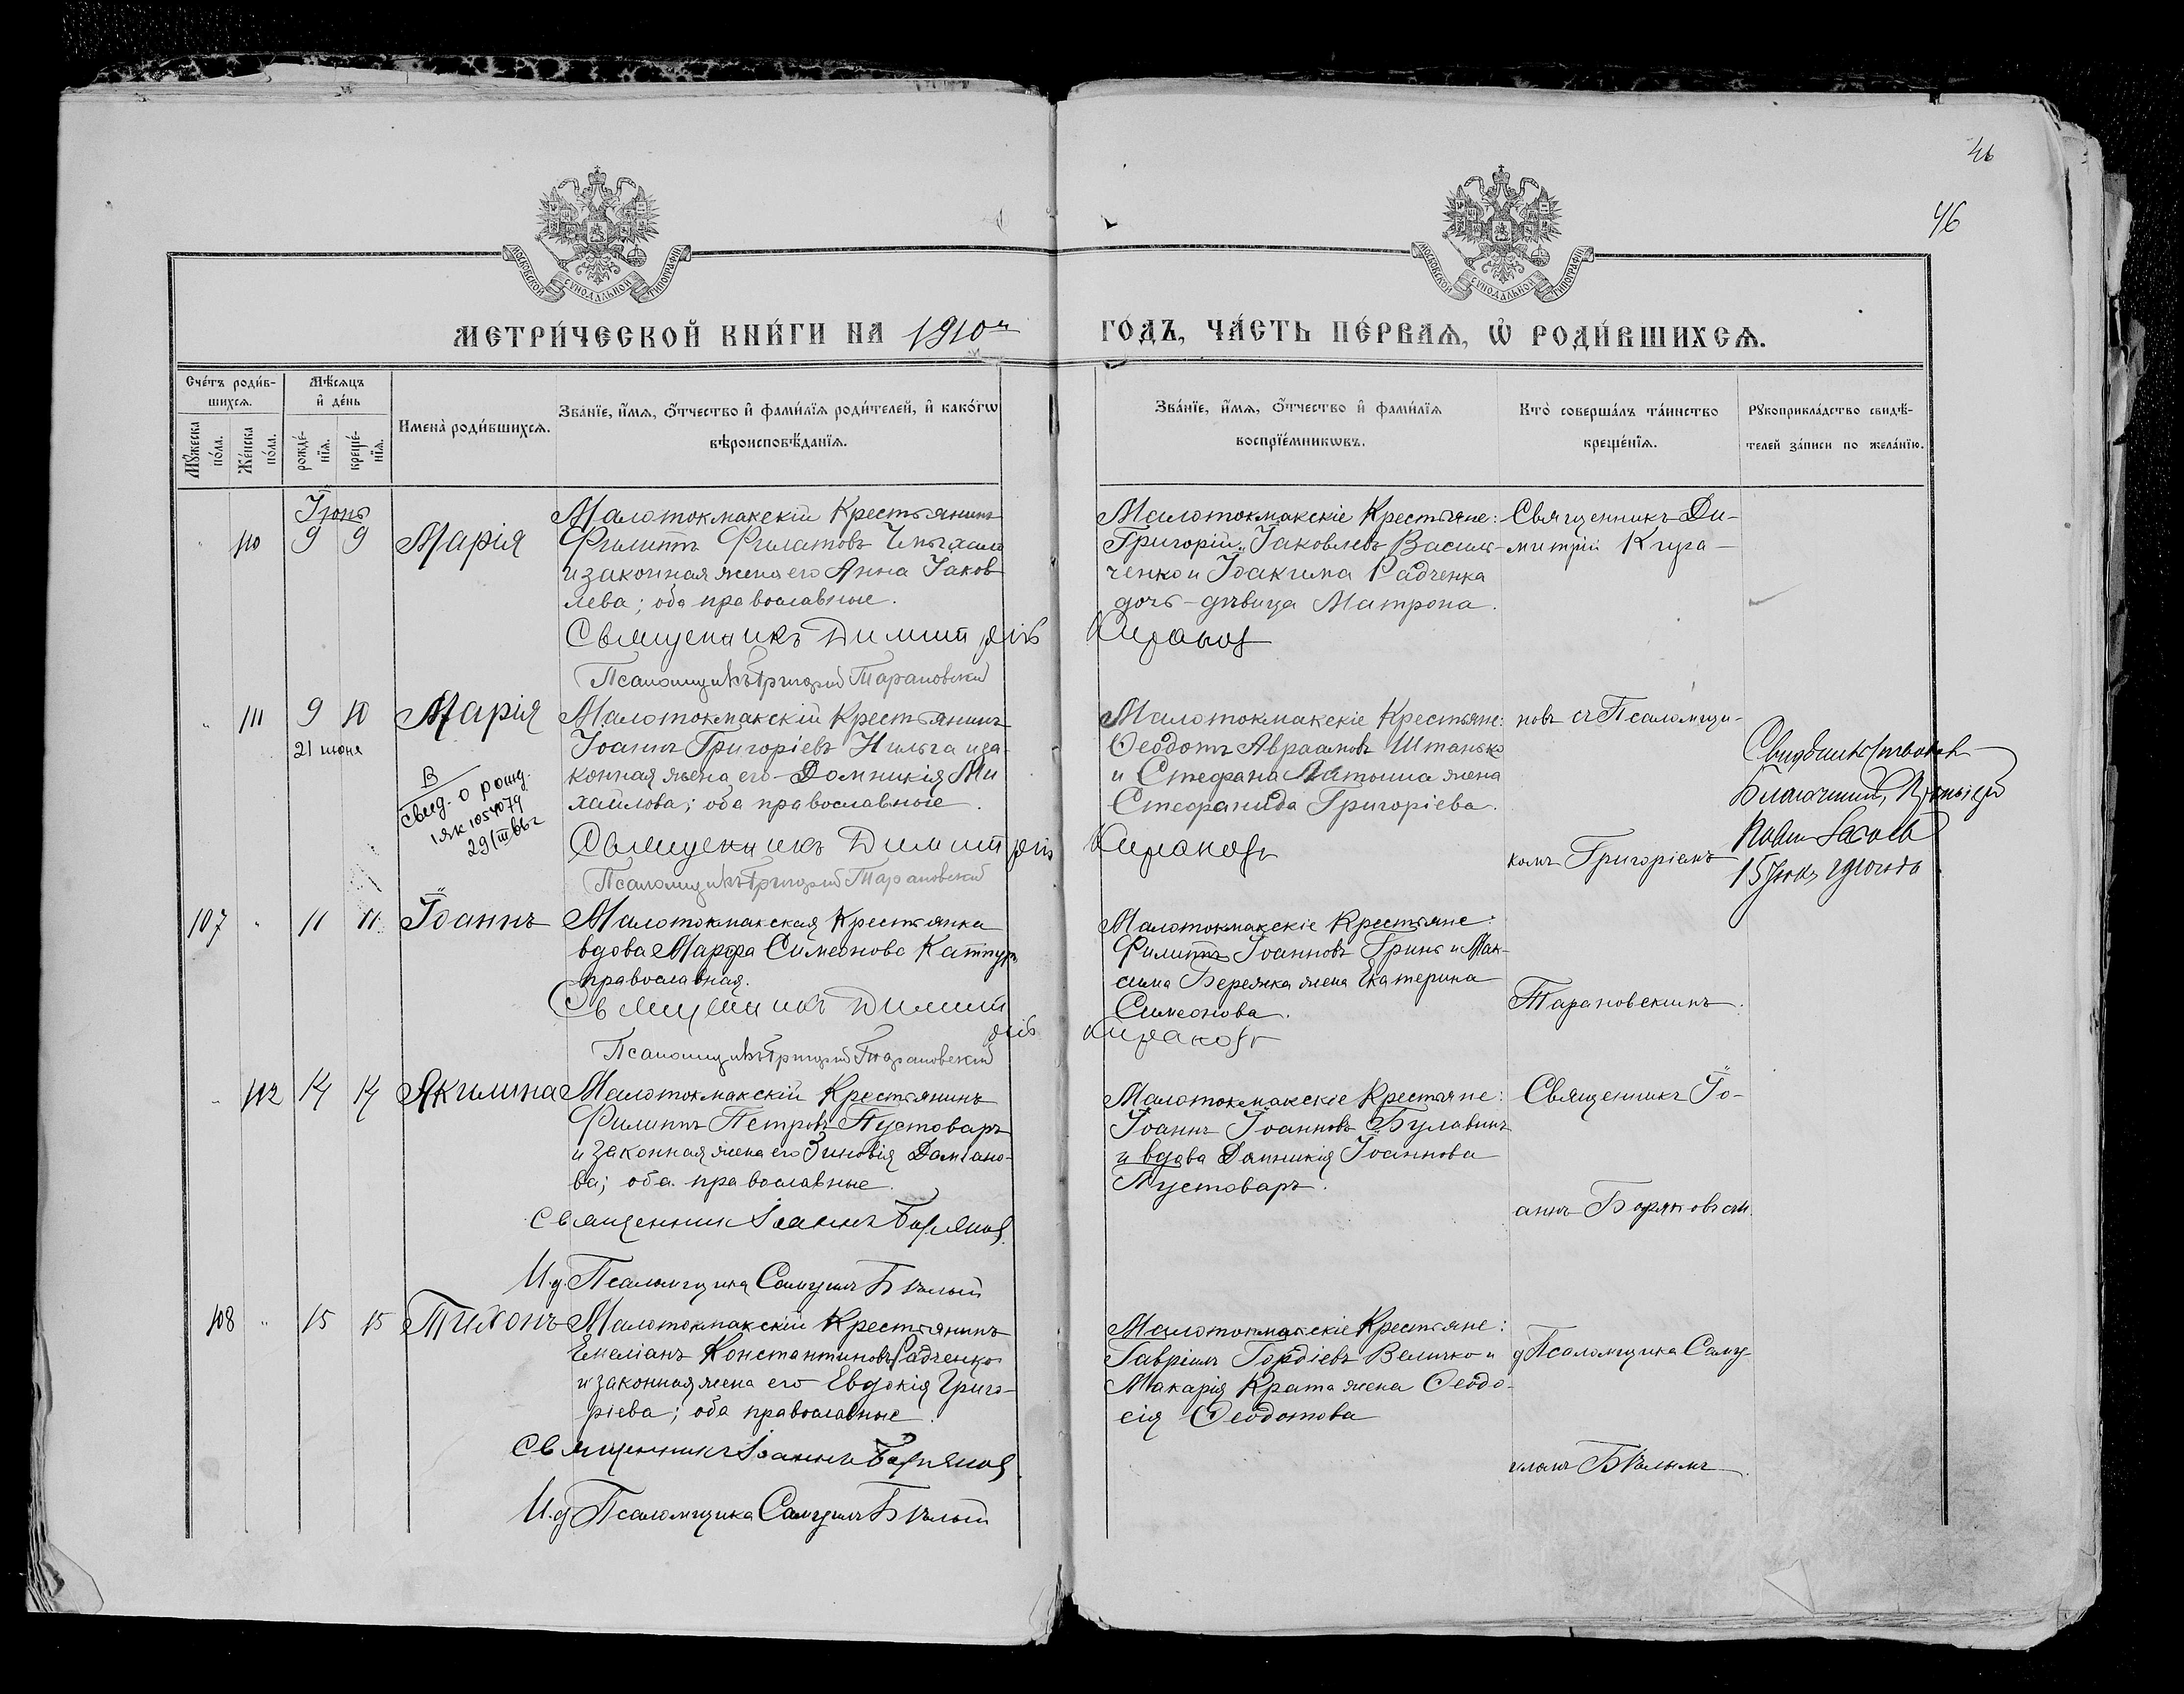 46
46
МОСКОВСКОЙ СУНОДАЛЬНОЙ ТИПОГРАФІИ
МОСКОВСКОЙ СУНОДАЛЬНОЙ ТИПОГРАФІИ
МЕТРИ́ЧЕСКОЙ КНИ́ГИ НА 1910й
ГО́ДЪ, ЧА́СТЬ ПЕ́РВАѦ, Ѡ҆ РОДИ́ВШИХСѦ.
Сче́тъ роди́в-
шихсѧ.
Мꙋ́жеска по́ла.
Же́нска по́ла.
Мѣ́сѧцъ
и҆ де́нь
рожде́-
нїѧ.
креще́-
нїѧ.
Имена̀ роди́вшихсѧ.
Зва́нїе, и҆́мѧ, ѻ҆́тчество и҆ фами́лїѧ роди́телей, и҆ како́гѡ
вѣроисповѣ́данїѧ.
Зва́нїе, и҆́мѧ, ѻ҆́тчество и҆ фами́лїѧ
воспрїе́мникѡвъ.
Кто̀ соверша́лъ та́инство
креще́нїѧ.
Рꙋкоприкла́дство свидѣ́-
телей за́писи по жела́нїю.
Іюнь
110 9 9 Марія
Малотокмакскій Крестьянинъ
Филиппъ Филатовъ
и законная жена его Анна Іаков-
лева; оба православные.
Священникъ Димитрій
Псаломщикъ Григорій Тарановскій
Малотокмакскіе Крестьяне:
Григорій Іаковлевъ Василь-
ченко и Іоакима Радченка
дочь-дѣвица Матрона.
Священникъ Ди-
митрій Кира-
111 9 10 Марія
21 июня
В
свид. о рожд.
1 ЯК 1054079
29/III 66г
Малотокмакскій Крестьянинъ
Іоаннъ Григоріевъ Нильга и за-
конная жена его Домникія Ми-
хайлова; оба православные.
Священникъ Димитрій
Псаломщикъ Григорій Тарановскій
Малотокмакскіе Крестьяне:
Ѳеодотъ Авраамовъ Штанько
и Стефана Латоша жена
Стефанида Григоріева.
новъ съ Псаломщи-
комъ Григоріемъ
Свидѣтельствовалъ
Благочинный, Протоіерей
107 11 11 Іоаннъ
Малотокмакская Крестьянка
вдова Марфа Симеонова
православная.
Священникъ Димит
рій
Псаломщикъ Григорій Тарановскій
Малотокмакскіе Крестьяне:
Филиппъ Іоанновъ Гринь и Мак-
сима Бережка жена Екатерина
Симеонова.
Тарановскимъ.
112 14 14 Якилина
Малотокмакскій Крестьянинъ
Филиппъ Петровъ Пустоваръ
и законная жена его Зиновія Даміано-
ва; оба православные.
Священникъ Іоаннъ
И.д. Псаломщика Самуилъ Бѣлый
Малотокмакскіе Крестьяне:
Іоаннъ Іоанновъ Булавинъ
и вдова Домникія Іоаннова
Пустоваръ.
Священникъ Іо-
аннъ
108 15 15 Тихонъ
Малотокмакскій Крестьянинъ
Емеліанъ Константиновъ Радченко
и законная жена его Евдокія Григо-
ріева; оба православные.
Священникъ Іоаннъ
И.д Псаломщика Самуилъ Бѣлый
Малотокмакскіе Крестьяне:
Гавріилъ Гордіевъ Величко и
Макарія Крата жена Ѳеодо-
сія Ѳеодотова
д Псаломщика Саму-
иломъ Бѣлымъ.